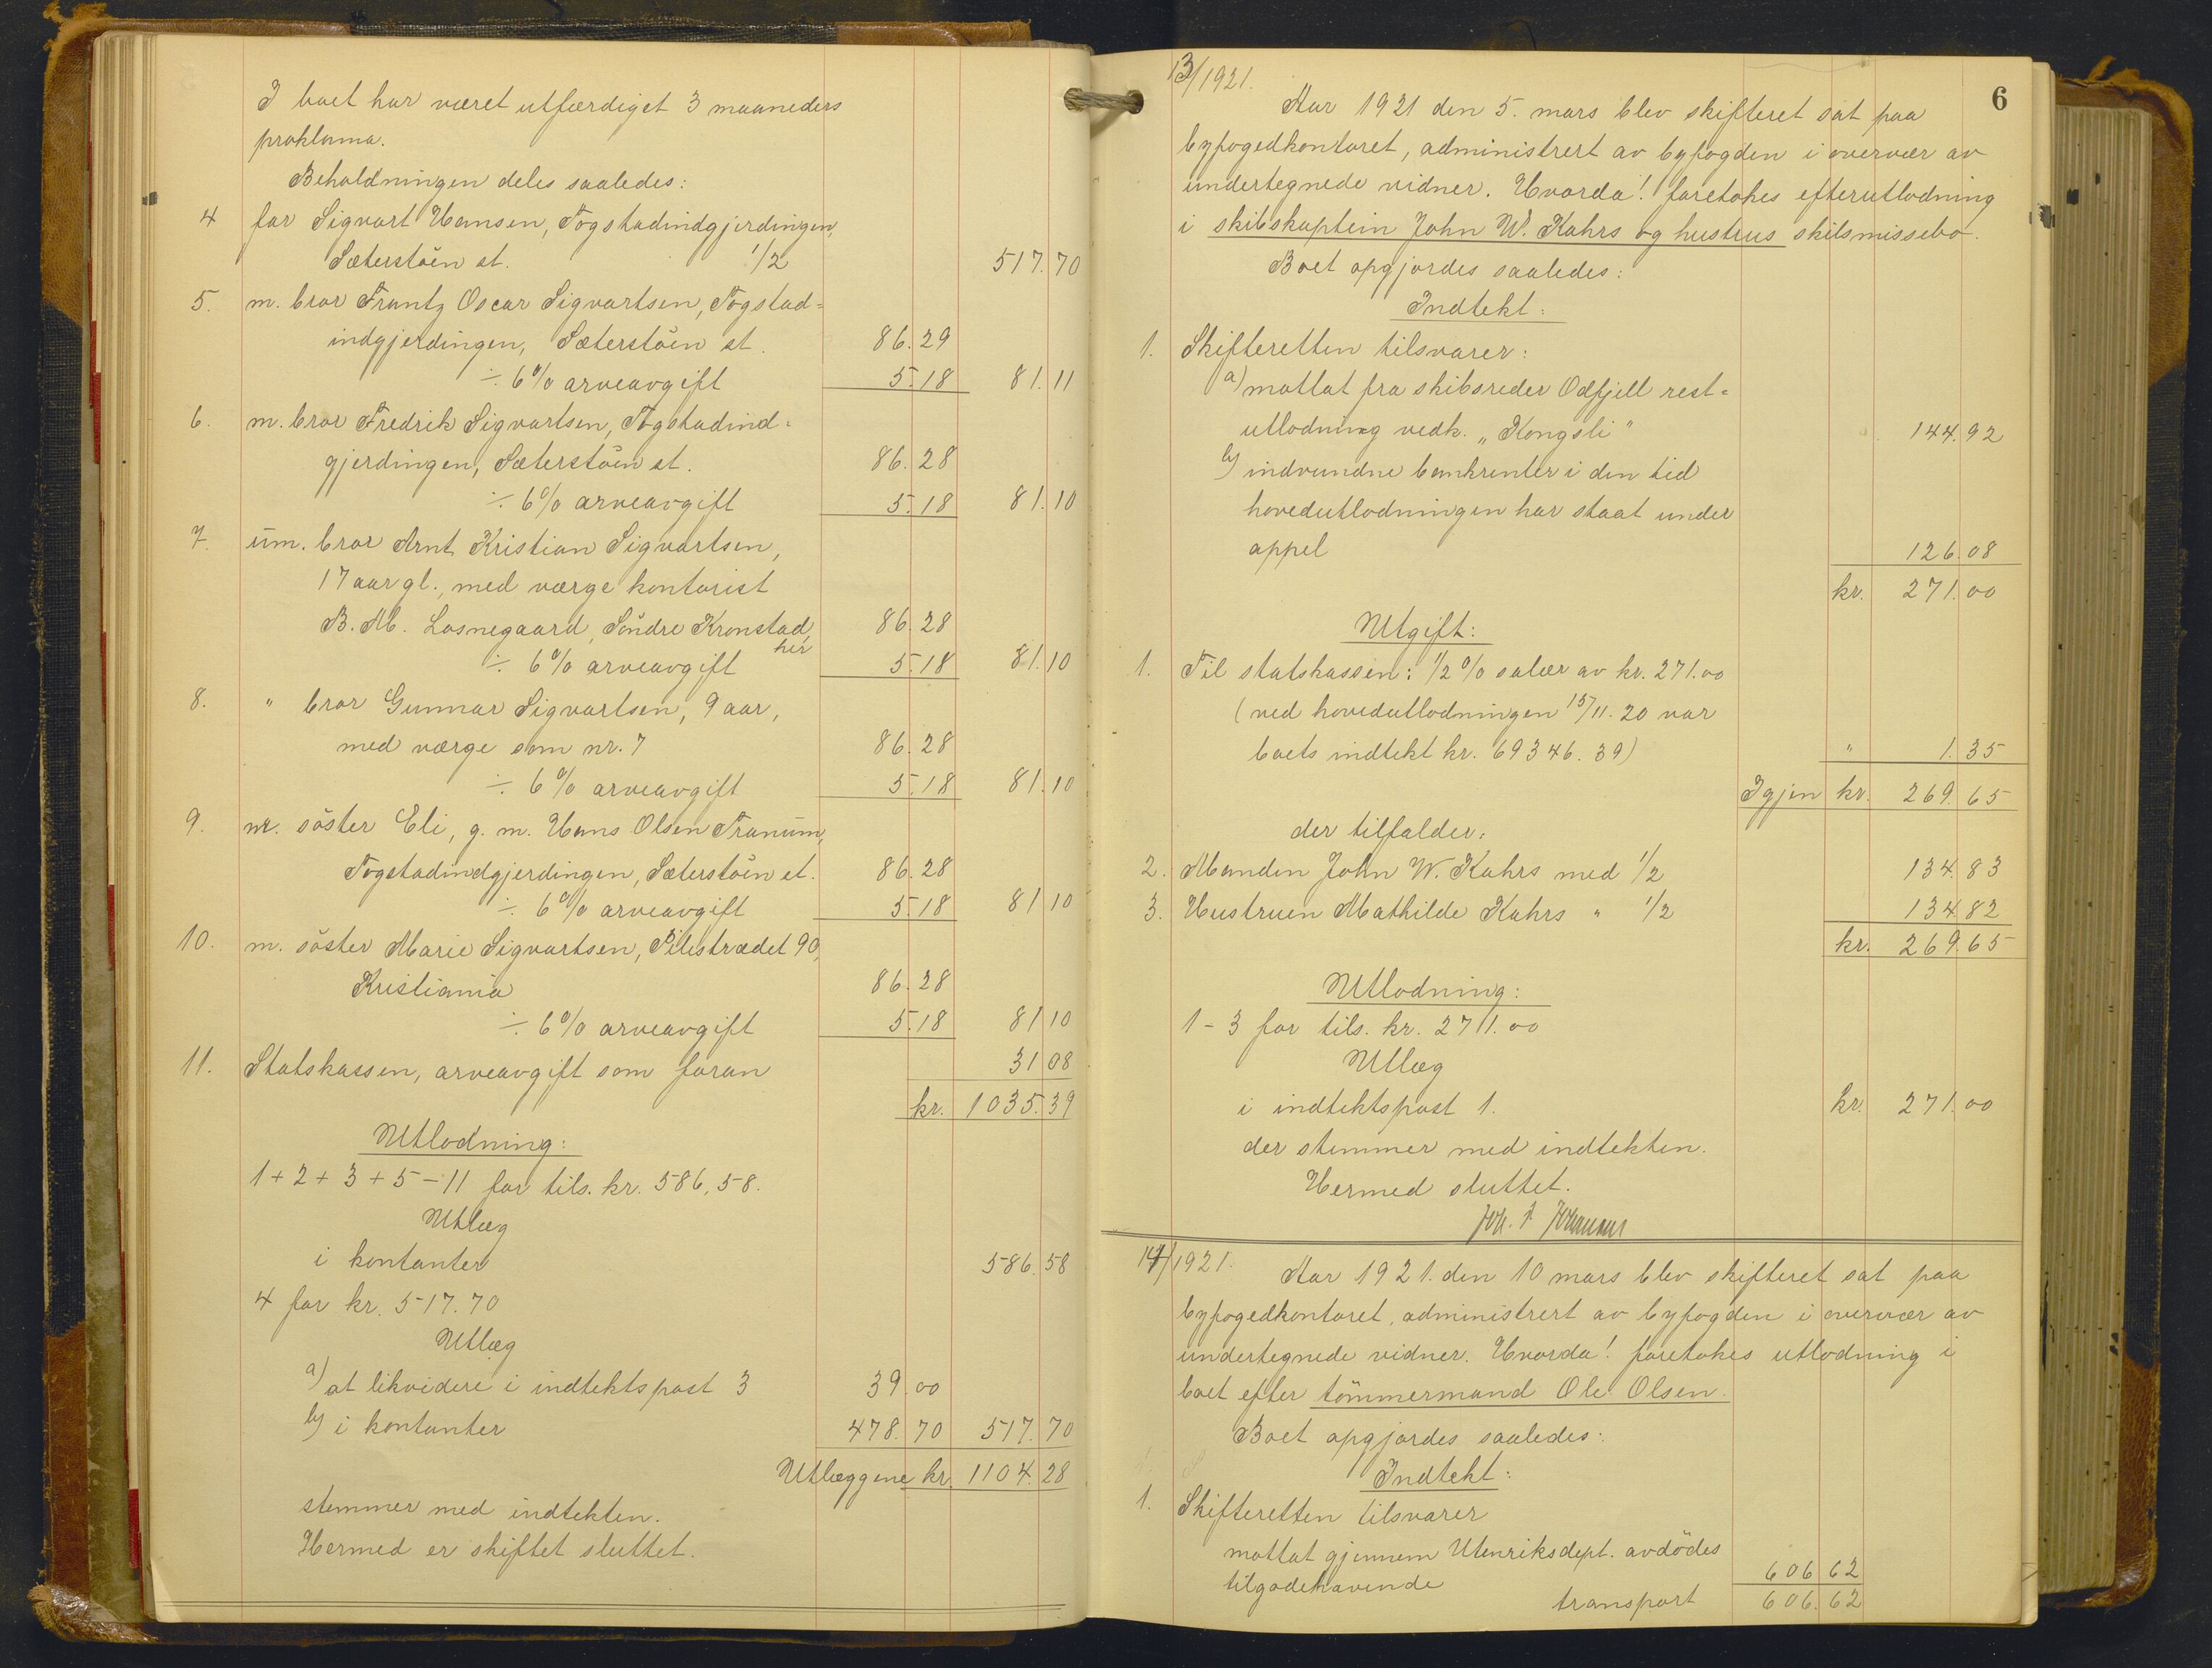 I boet har været utfærdiget 3 maaneders
proklama.
Beholdningen deles saaledes:
4 far Sigvart Hansen, Togstadindgjerdingen,
Sæterstöen st. 1/2 517.70
5. m. bror Frantz Oscar Sigvartsen, Togstad=
indgjerdingen, Sæterstöen st. 86.29
÷ 6% arveavgift 5.18 81.11
6. m. bror Fredrik Sigvartsen, Togstadind=
gjerdingen, Sæterstöen st. 86.28
÷ 6% arveavgift 5.18 81.10
7. um. bror Arnt Kristian Sigvartsen,
17 aar gl., med værge kontorist
B. M. Losnegaard, Söndre Kronstad, 86.28
her
÷ 6% arveavgift 5.18 81.10
8. " bror Gunnar Sigvartsen, 9 aar,
med værge som nr. 7 86.28
÷ 6% arveavgift 5.18 81.10
9. m. söster Eli, g. m. Hans Olsen Tranum,
Togstadindgjerdingen, Sæterstöen st. 86.28
÷ 6% arveavgift 5.18 81 10
10. m. söster Marie Sigvartsen, Pilestrædet 90,
Kristiania 86.28
÷ 6% arveavgift 5.18 81 10
11. Statskassen, arveavgift som foran 31 08
kr. 1035.39
Utlodning:
1+2+3+5-11 for tils. kr. 586,58.
Utlæg
i kontanter 586.58
4 for kr. 517.70
Utlæg
a) at likvidere i indtektspost 3 39.00
b) i kontanter 478.70 517.70
Utlæggene kr. 1104.28
stemmer med indtekten.
Hermed er skiftet sluttet.
6
13/1921.
Aar 1921 den 5. mars blev skifteret sat paa
byfogedkontoret, administrert av byfogden i overvær av
undertegnede vidner. Hvorda! foretokes efterutlodning
i skibskaptein John W. Kahrs og hustrus skilsmissebo.
Boet opgjordes saaledes:
Indtekt:
1. Skifteretten tilsvarer:
a) mottat fra skibsreder Odfjell rest=
utlodning vedk. „Kongsli" 144.92
b) indvundne bankrenter i den tid
hovedutlodningen har staat under
appel 126.08
kr. 271.00
Utgift:
1. Til statskassen: 1/2 % salær av kr. 271.00
(ved hovedutlodningen 15/11.20 var
boets indtekt kr. 69346.39) " 1.35
Igjen kr. 269.65
der tilfalder:
2. Manden John W. Kahrs med 1/2 134.83
3. Hustruen Mathilde Kahrs " 1/2 134.82
kr. 269.65
Utlodning:
1-3 for tils. kr. 271.00
Utlæg
i indtektspost 1. kr. 271.00
der stemmer med indtekten.
Hermed sluttet.
14/1921.
Aar 1921. den 10 mars blev skifteret sat paa
byfogedkontoret, administrert av byfogden i overvær av
undertegnede vidner. Hvorda! foretokes utlodning i
boet efter tömmermand Ole Olsen.
Boet opgjordes saaledes:
Indtekt:
1. Skifteretten tilsvarer
mottat gjennem Utenriksdept. avdödes
tilgodehavende 606 62
transport 606.62